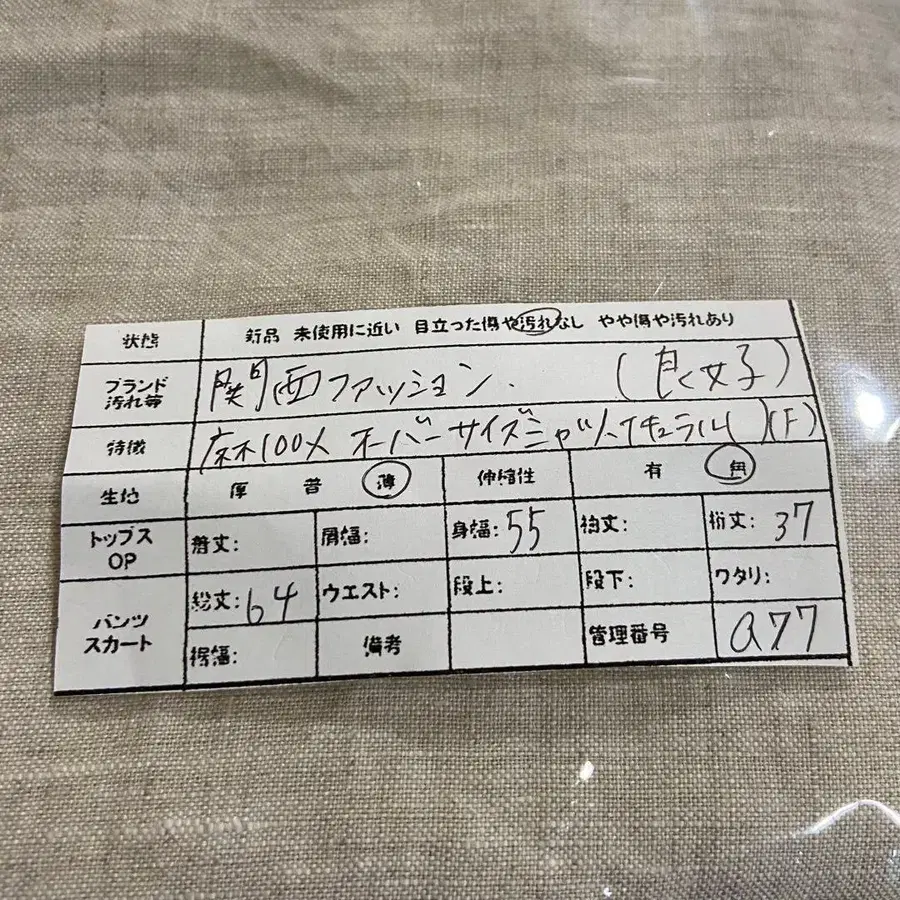 状態 新品 未使用に近い 目立った傷や汚れなし やや傷や汚れあり
ブランド 汚れ等 関西ファッション. (良く女子)
特徴 麻100% オーバーサイズシャツ ナチュラル (F)
生地 厚 普 薄 伸縮性 有 無
トップス OP 着丈: 肩幅: 身幅:55 裄丈:37
パンツ スカート 総丈:64 ウエスト: 段上: 段下: ワタリ:
裾幅: 備考 管理番号 Q77